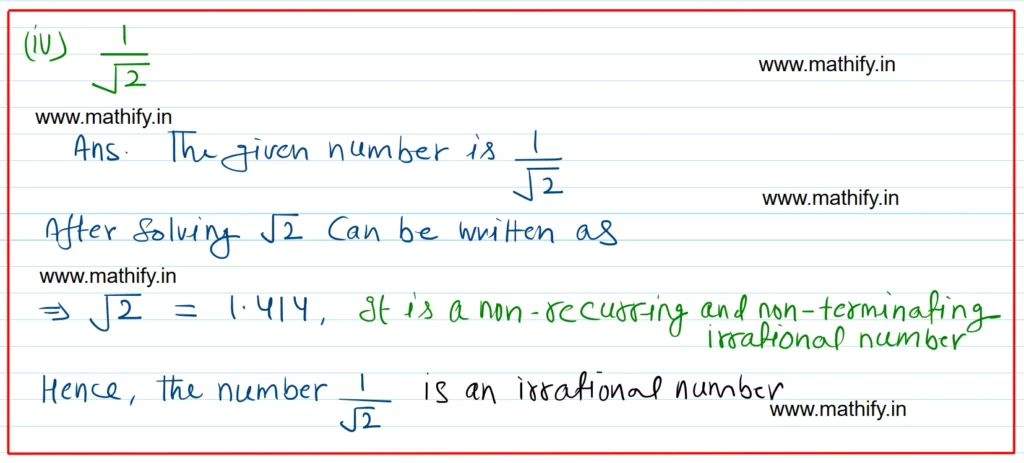 (iv) 1/√2
www.mathify.in
www.mathify.in
Ans. The given number is 1/√2
www.mathify.in
After solving √2 Can be written as
www.mathify.in
⇒ √2 = 1.414, It is a non-recurring and non-terminating
irrational number
Hence, the number 1/√2 is an irrational number
www.mathify.in